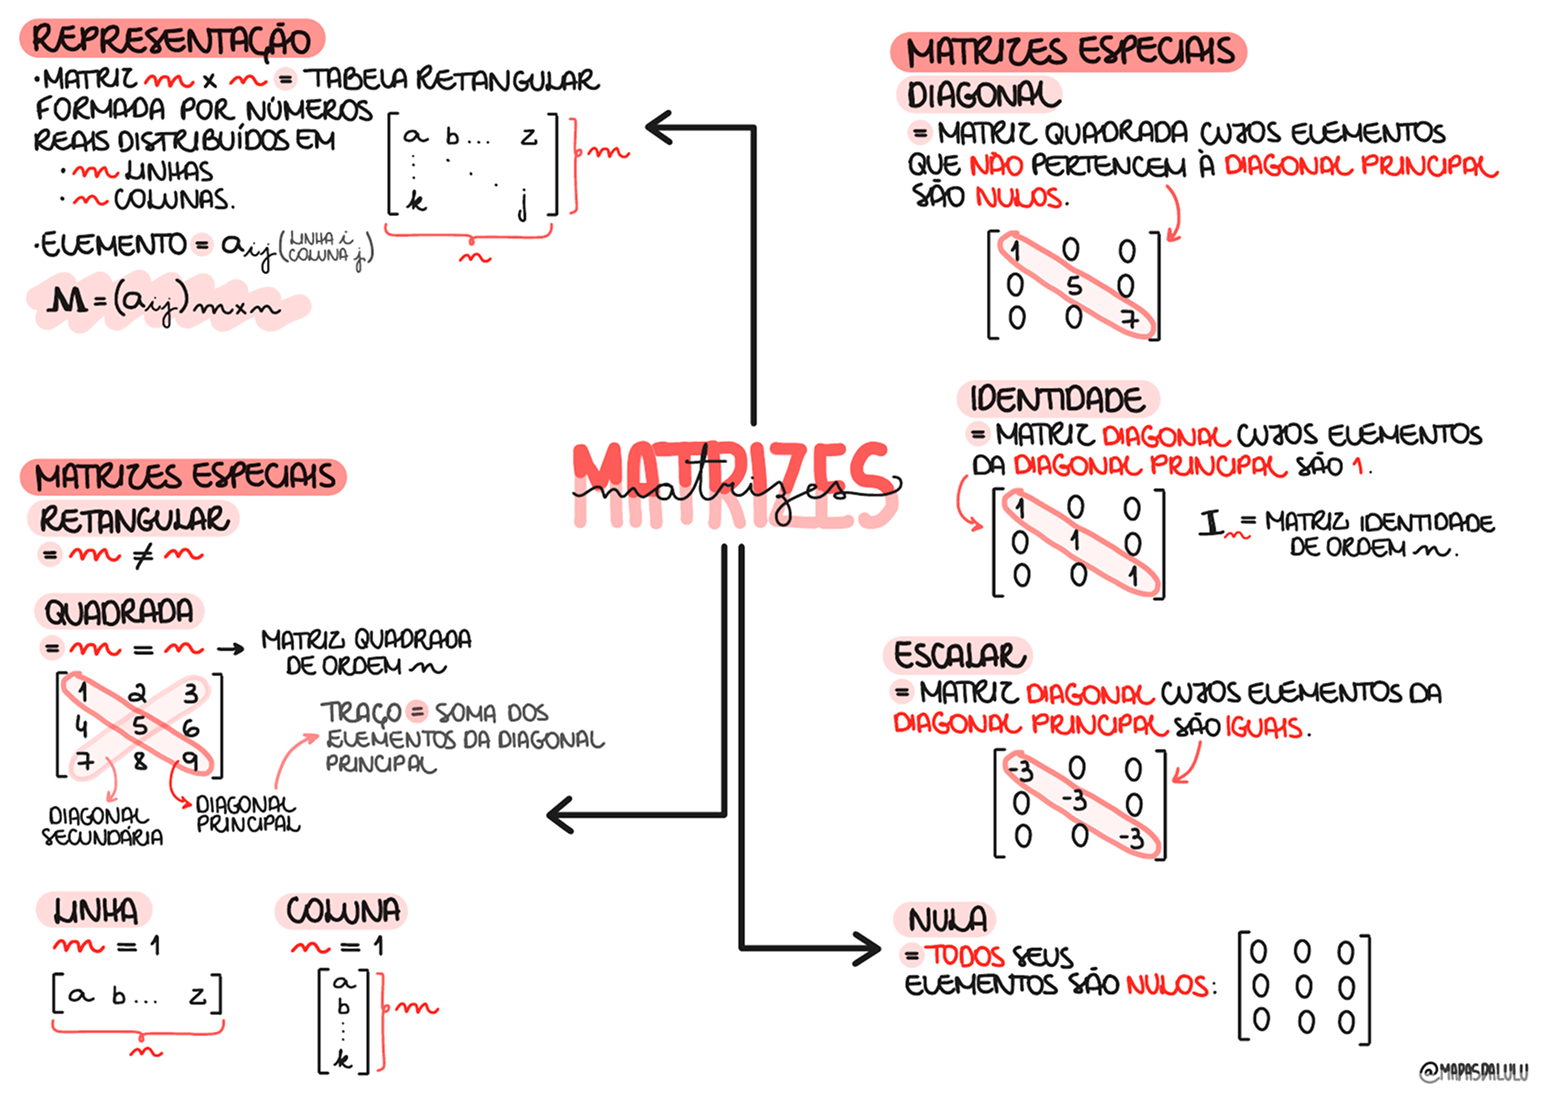 REPRESENTAÇÃO
·MATRIZ m x n = TABELA RETANGULAR
FORMADA POR NÚMEROS
REAIS DISTRIBUÍDOS EM
· m LINHAS
· n COLUNAS.
a b... z
k j
m
n
·ELEMENTO = aij (LINHA i
COLUNA j)
M = (aij)mxn
MATRIZES
matrizes
MATRIZES ESPECIAIS
RETANGULAR
= m ≠ n
QUADRADA
= m = n → MATRIZ QUADRADA
DE ORDEM n
1 2 3
4 5 6
7 8 9
TRAÇO = SOMA DOS
ELEMENTOS DA DIAGONAL
PRINCIPAL
DIAGONAL
SECUNDÁRIA
DIAGONAL
PRINCIPAL
LINHA
m = 1
[a b... z]
n
COLUNA
n = 1
a
b
:
k
m
MATRIZES ESPECIAIS
DIAGONAL
= MATRIZ QUADRADA CUJOS ELEMENTOS
QUE NÃO PERTENCEM À DIAGONAL PRINCIPAL
SÃO NULOS.
1 0 0
0 5 0
0 0 7
IDENTIDADE
= MATRIZ DIAGONAL CUJOS ELEMENTOS
DA DIAGONAL PRINCIPAL SÃO 1.
1 0 0
0 1 0
0 0 1
In = MATRIZ IDENTIDADE
DE ORDEM n.
ESCALAR
= MATRIZ DIAGONAL CUJOS ELEMENTOS DA
DIAGONAL PRINCIPAL SÃO IGUAIS.
-3 0 0
0 -3 0
0 0 -3
NULA
= TODOS SEUS
ELEMENTOS SÃO NULOS:
0 0 0
0 0 0
0 0 0
@MAPASDALULU